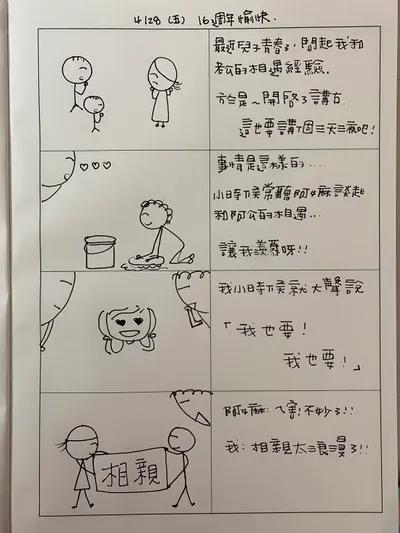 4/28 (五) 16週年愉快.
最近兒子青春了,問起我和
老公的相遇經驗.
於是~開啓了講古
這也要講個三天三夜吧!
事情是這樣的....
小時候常聽阿嬤談起
和阿公的相遇...
讓我羨慕呀!!
我小時候就大聲說
「我也要!
我也要!」
阿嬤:ㄟ害!不妙了!!
我:相親太浪漫了!!
相親